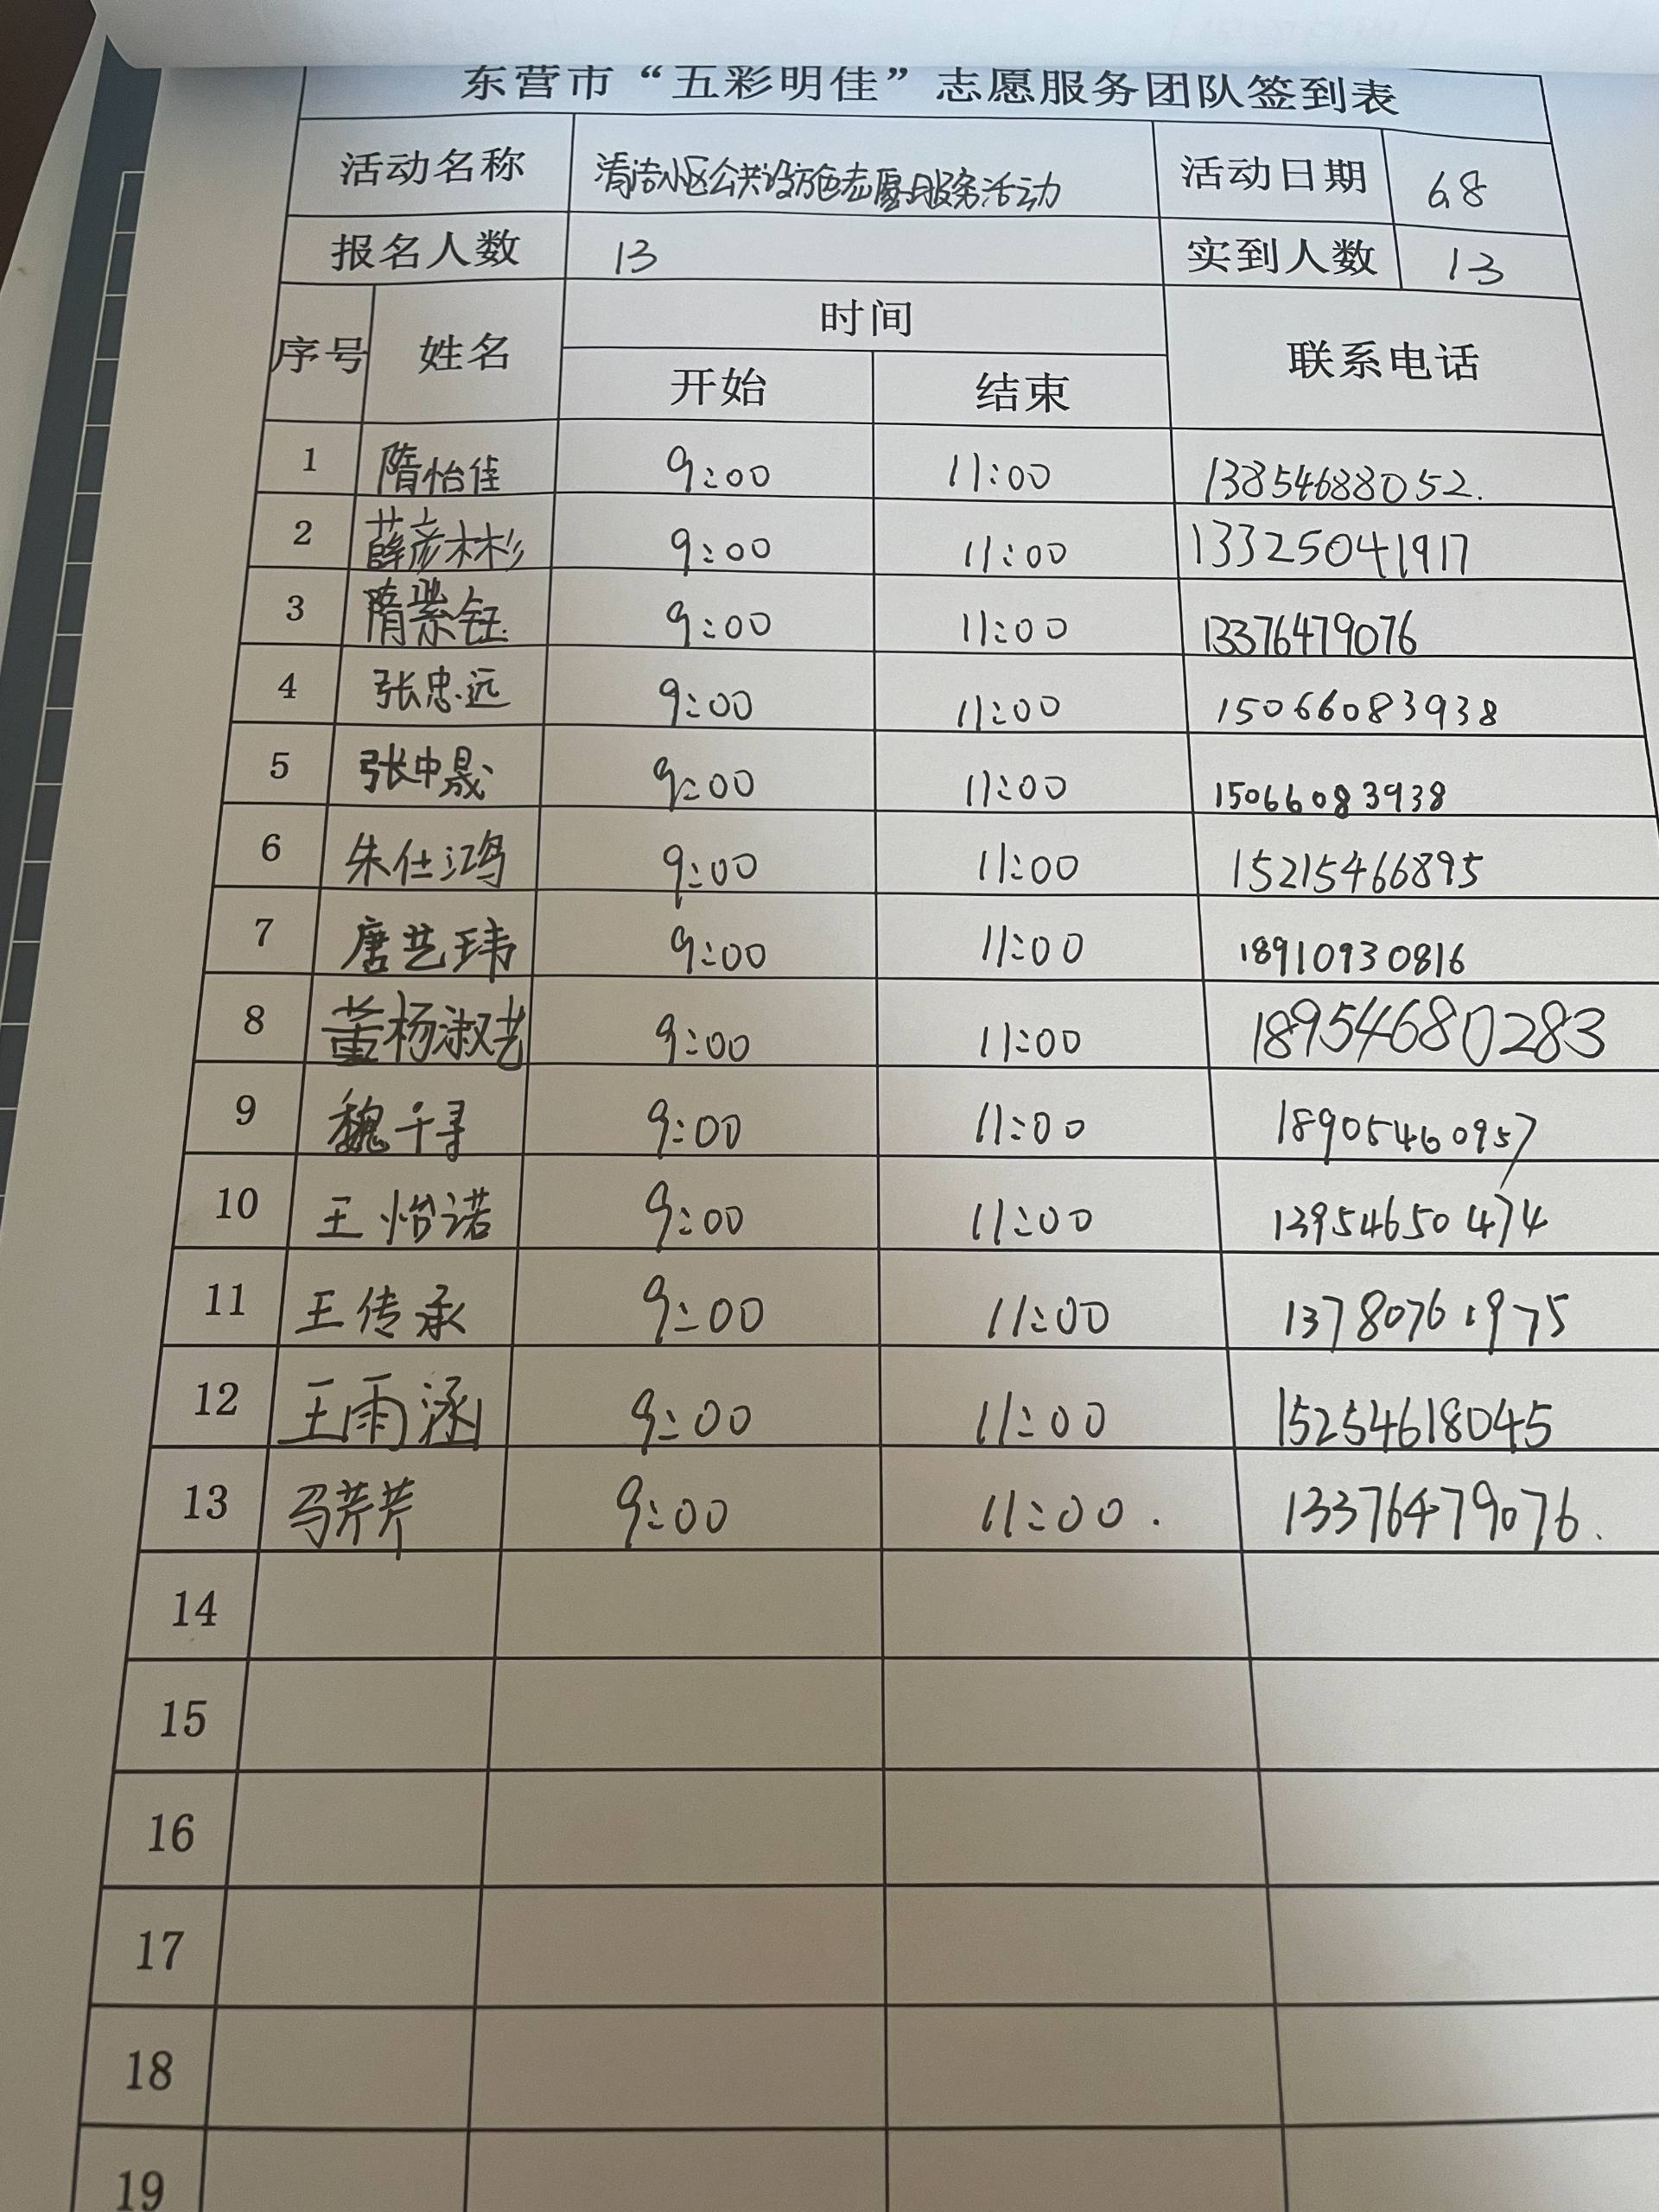 东营市“五彩明佳”志愿服务团队签到表
活动名称 清洁小区公共设施志愿服务活动 活动日期 6.8
报名人数 13 实到人数 13
序号 姓名 时间 联系电话
开始 结束
1 隋怡佳 9:00 11:00 13854688052.
2 薛彦彬 9:00 11:00 13325041917
3 隋紫钰 9:00 11:00 13376479076
4 张忠远 9:00 11:00 15066083938
5 张中晟 9:00 11:00 15066083938
6 朱仕鸿 9:00 11:00 15215466895
7 唐艺玮 9:00 11:00 18910930816
8 董杨淑艺 9:00 11:00 18954680283
9 魏千寻 9:00 11:00 18905460957
10 王怡诺 9:00 11:00 13954650474
11 王传承 9:00 11:00 13780761975
12 王雨涵 9:00 11:00 15254618045
13 马荠荠 9:00 11:00. 13376479076.
14
15
16
17
18
19